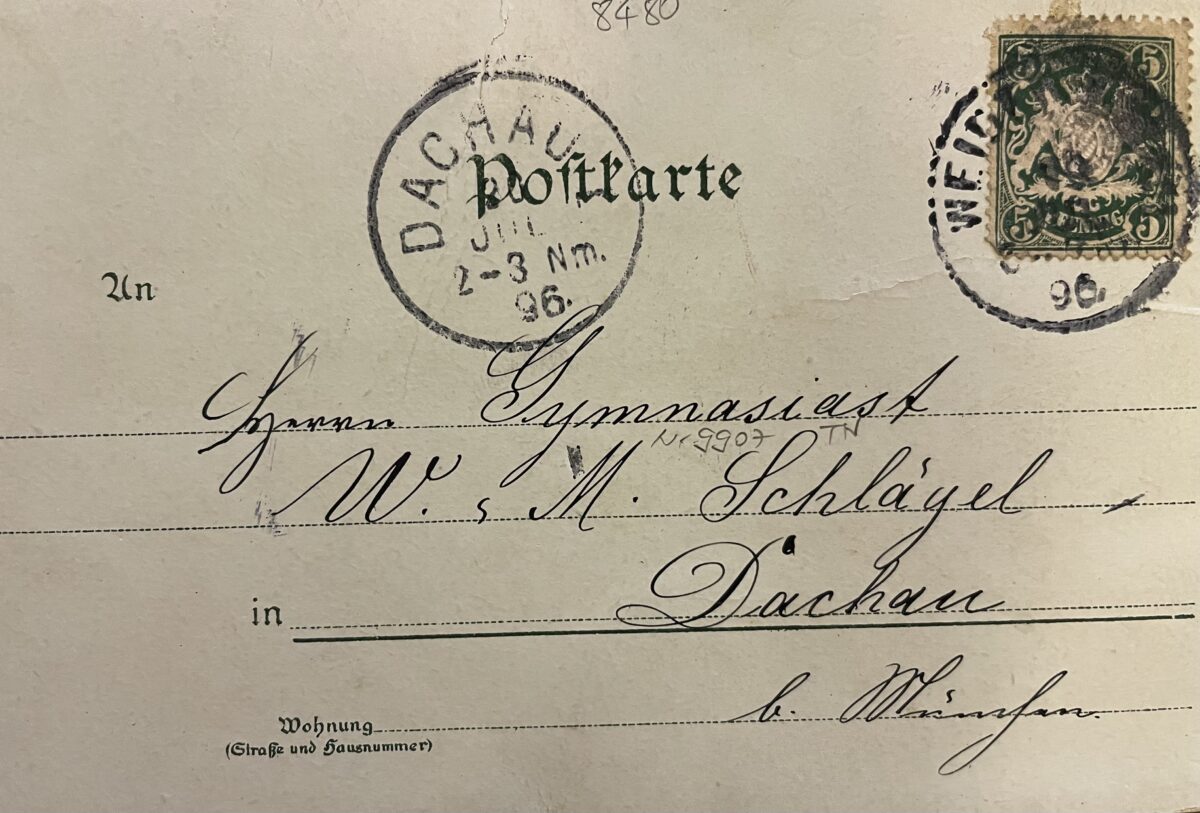 8480
DACHAU
JUL
2-3 Nm.
96.
Postkarte
5 5
5 5
96.
An
Herrn Gymnasiast
Nr 9907 TN
W. M. Schlägel
in Dachau
b. München.
Wohnung
(Straße und Hausnummer)